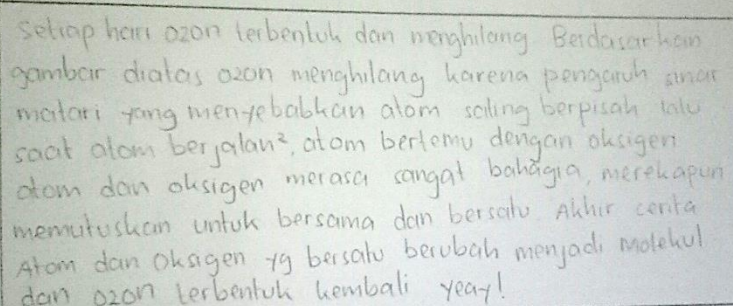 setiap hari ozon terbentuk dan menghilang. Berdasarkan
gambar diatas ozon menghilang karena pengaruh sinar
matari yang menyebabkan atom saling berpisah lalu
saat atom berjalan², atom bertemu dengan oksigen
atom dan oksigen merasa sangat bahagia, merekapun
memutuskan untuk bersama dan bersatu. Akhir cerita
Atom dan Oksigen yg bersatu berubah menjadi molekul
dan ozon terbentuk kembali yeay!